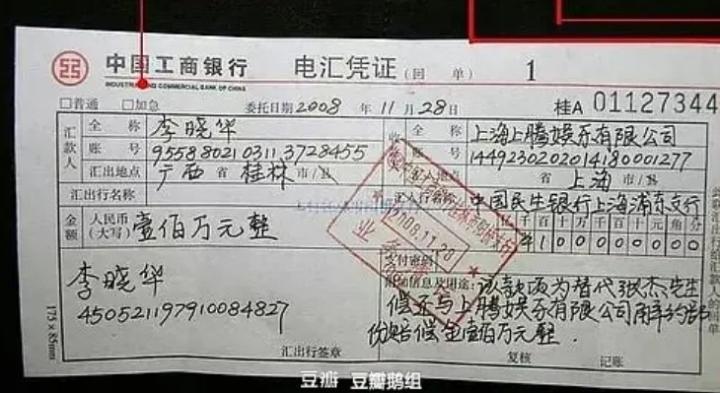 中国工商银行 电汇凭证（回单） 1
INDUSTRIAL AND COMMERCIAL BANK OF CHINA
□普通 □加急 委托日期2008年11月28日 桂A 01127344
汇款人 全称 李晓华 收款人 全称 上海上腾娱乐有限公司
账号 9558802103113728455 账号 1449230202014180001277
汇出地点 广西省桂林市/县 汇入地点 省上海市/县
汇出行名称 汇入行名称 中国民生银行上海浦东支行
金额 人民币（大写） 壹佰万元整 千百十万千百十元角分
¥1 0 0 0 0 0 0 0 0
2008.11.28
业务
支付密码
附加信息及用途：该款项为替代张杰先生
李晓华 偿还与上腾娱乐有限公司
450521197910084827 份赔偿金壹佰万元整．
汇出行签章 复核 记账
175×85mm
豆瓣 豆瓣鹅组